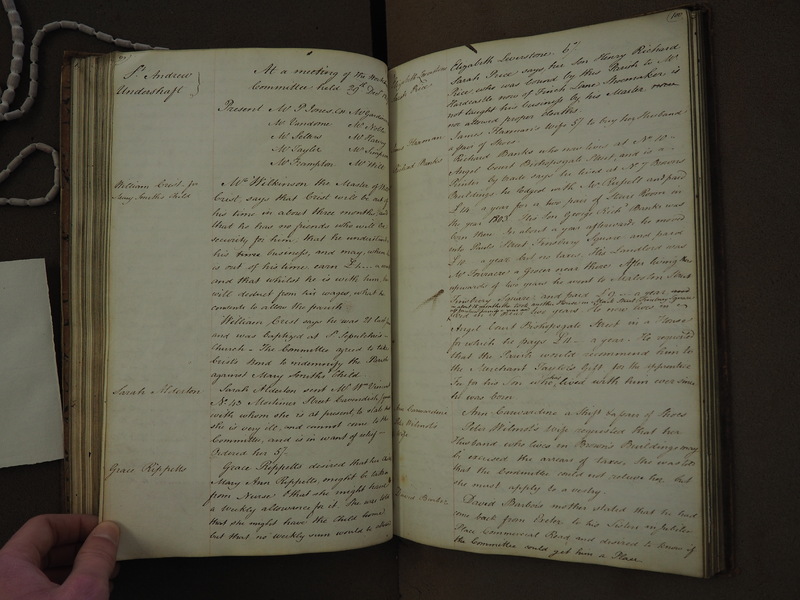 St Andrew
Undershaft
At a meeting of the
Committee held 29th Decr
Present Mr P. Jones
Mr Vandome Mr Noble
Mr Sellers Mr Harvey
Mr Taylor Mr Simpson
Mr Frampton Mr Will
William Crest for
Mary Smiths Child
Mr Wilkinson the Master of
Crest, says that Crest will be out of
his time in about three months,
that he has no friends who will be
security for him, that he understands
his business, and may, when he
is out of his time earn £4
and that whilst he is with him he
will deduct from his wages, what he
consents to allow the parish
William Crest says he was 21 last
and was baptized at St Sepulchre's
Church - The Committee agreed to take
Crest's Bond to indemnify the Parish
against Mary Smiths Child
Sarah Alderton
Sarah Alderton sent Mr Wm
No 43 Mortimer Street Cavendish
with whom she is at present, to state that
she is very ill, and cannot come to the
Committee, and is in want of relief
Ordered her 5/-
Grace Rippetts
Grace Rippetts desired that her
Mary Ann Rippetts, might be taken
from Nurse & that she might have
a weekly allowance for it. She was told
that she might have the Child home
but that no weekly sum would be allowed
100
Elizabeth Leverstone
Sarah Price
Elizabeth Leverstone 6/-
Sarah Price says her Son Henry Richard
Price who was bound by this Parish to Mr
Hardcastle now of Finch Lane Shoemaker, is
not taught his business by his Master, nor
not allowed proper cloaths
James Harman
James Harman's wife 5/- to buy her Husband
a pair of Shoes
Richard Banks
Richard Banks who now lives at No 10
Angel Court Bishopsgate Street, and is a
Printer by trade says he lived at No 7 Browns
Buildings, he lodged with Mr and paid
£14 a year for a two pair of Stairs Room in
the year 1803. His Son George Richd Banks was
born there. In about a year afterwards he moved
into Pauls Street Finsbury Square and paid
£10 a year but no taxes, His Landlord was
Mr a Grocer near there. After living there
upwards of two years he went to Street
Finsbury Square, and paid £12 a year
lived in it about two years He now lives in
Angel Court Bishopsgate Street in a House
for which he pays £14 a year. He requested
that the Parish would recommend him to
the Merchant Taylors Gift for the apprentice
fee for his Son who lived with him ever since
he was born
Ann Carwardine
Ann Carwardine a Shift & a pair of Shoes
Peter Wilmot's
Wife
Peter Wilmot's Wife requested that her
Husband who lives in Brown's Buildings may
be excused the arrears of taxes, She was told
that the Committee could not relieve her, but
she must apply to a vestry
David Barber
David Barber's mother stated that he had
come back from Exeter to his Sisters in
Place Commercial Road, and desired to know if
the Committee could get him a Place